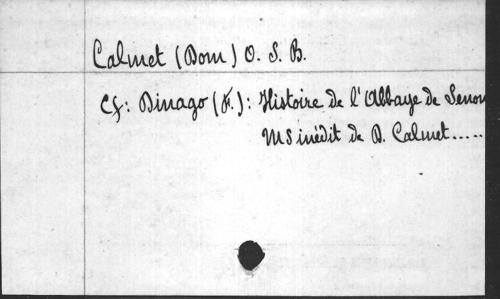 Calmet (Dom) O. S. B.
Cf: Dinago (F.): Histoire de l'Abbaye de Senon
MS inédit de D. Calmet.....